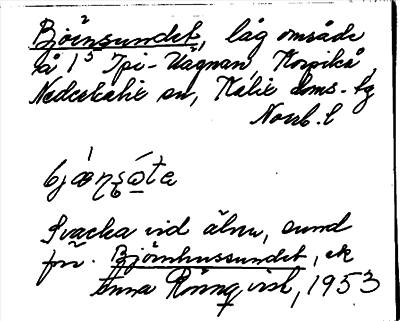 Björnsundet, låg område
å 1⁵ Ipi-Vagnan Korpikå
Nederkalix sn, Kalix doms. tg
Norrb. l
Svacka vid älven, sund
Björnhussundet, ek
Anna Rönnqvist, 1953